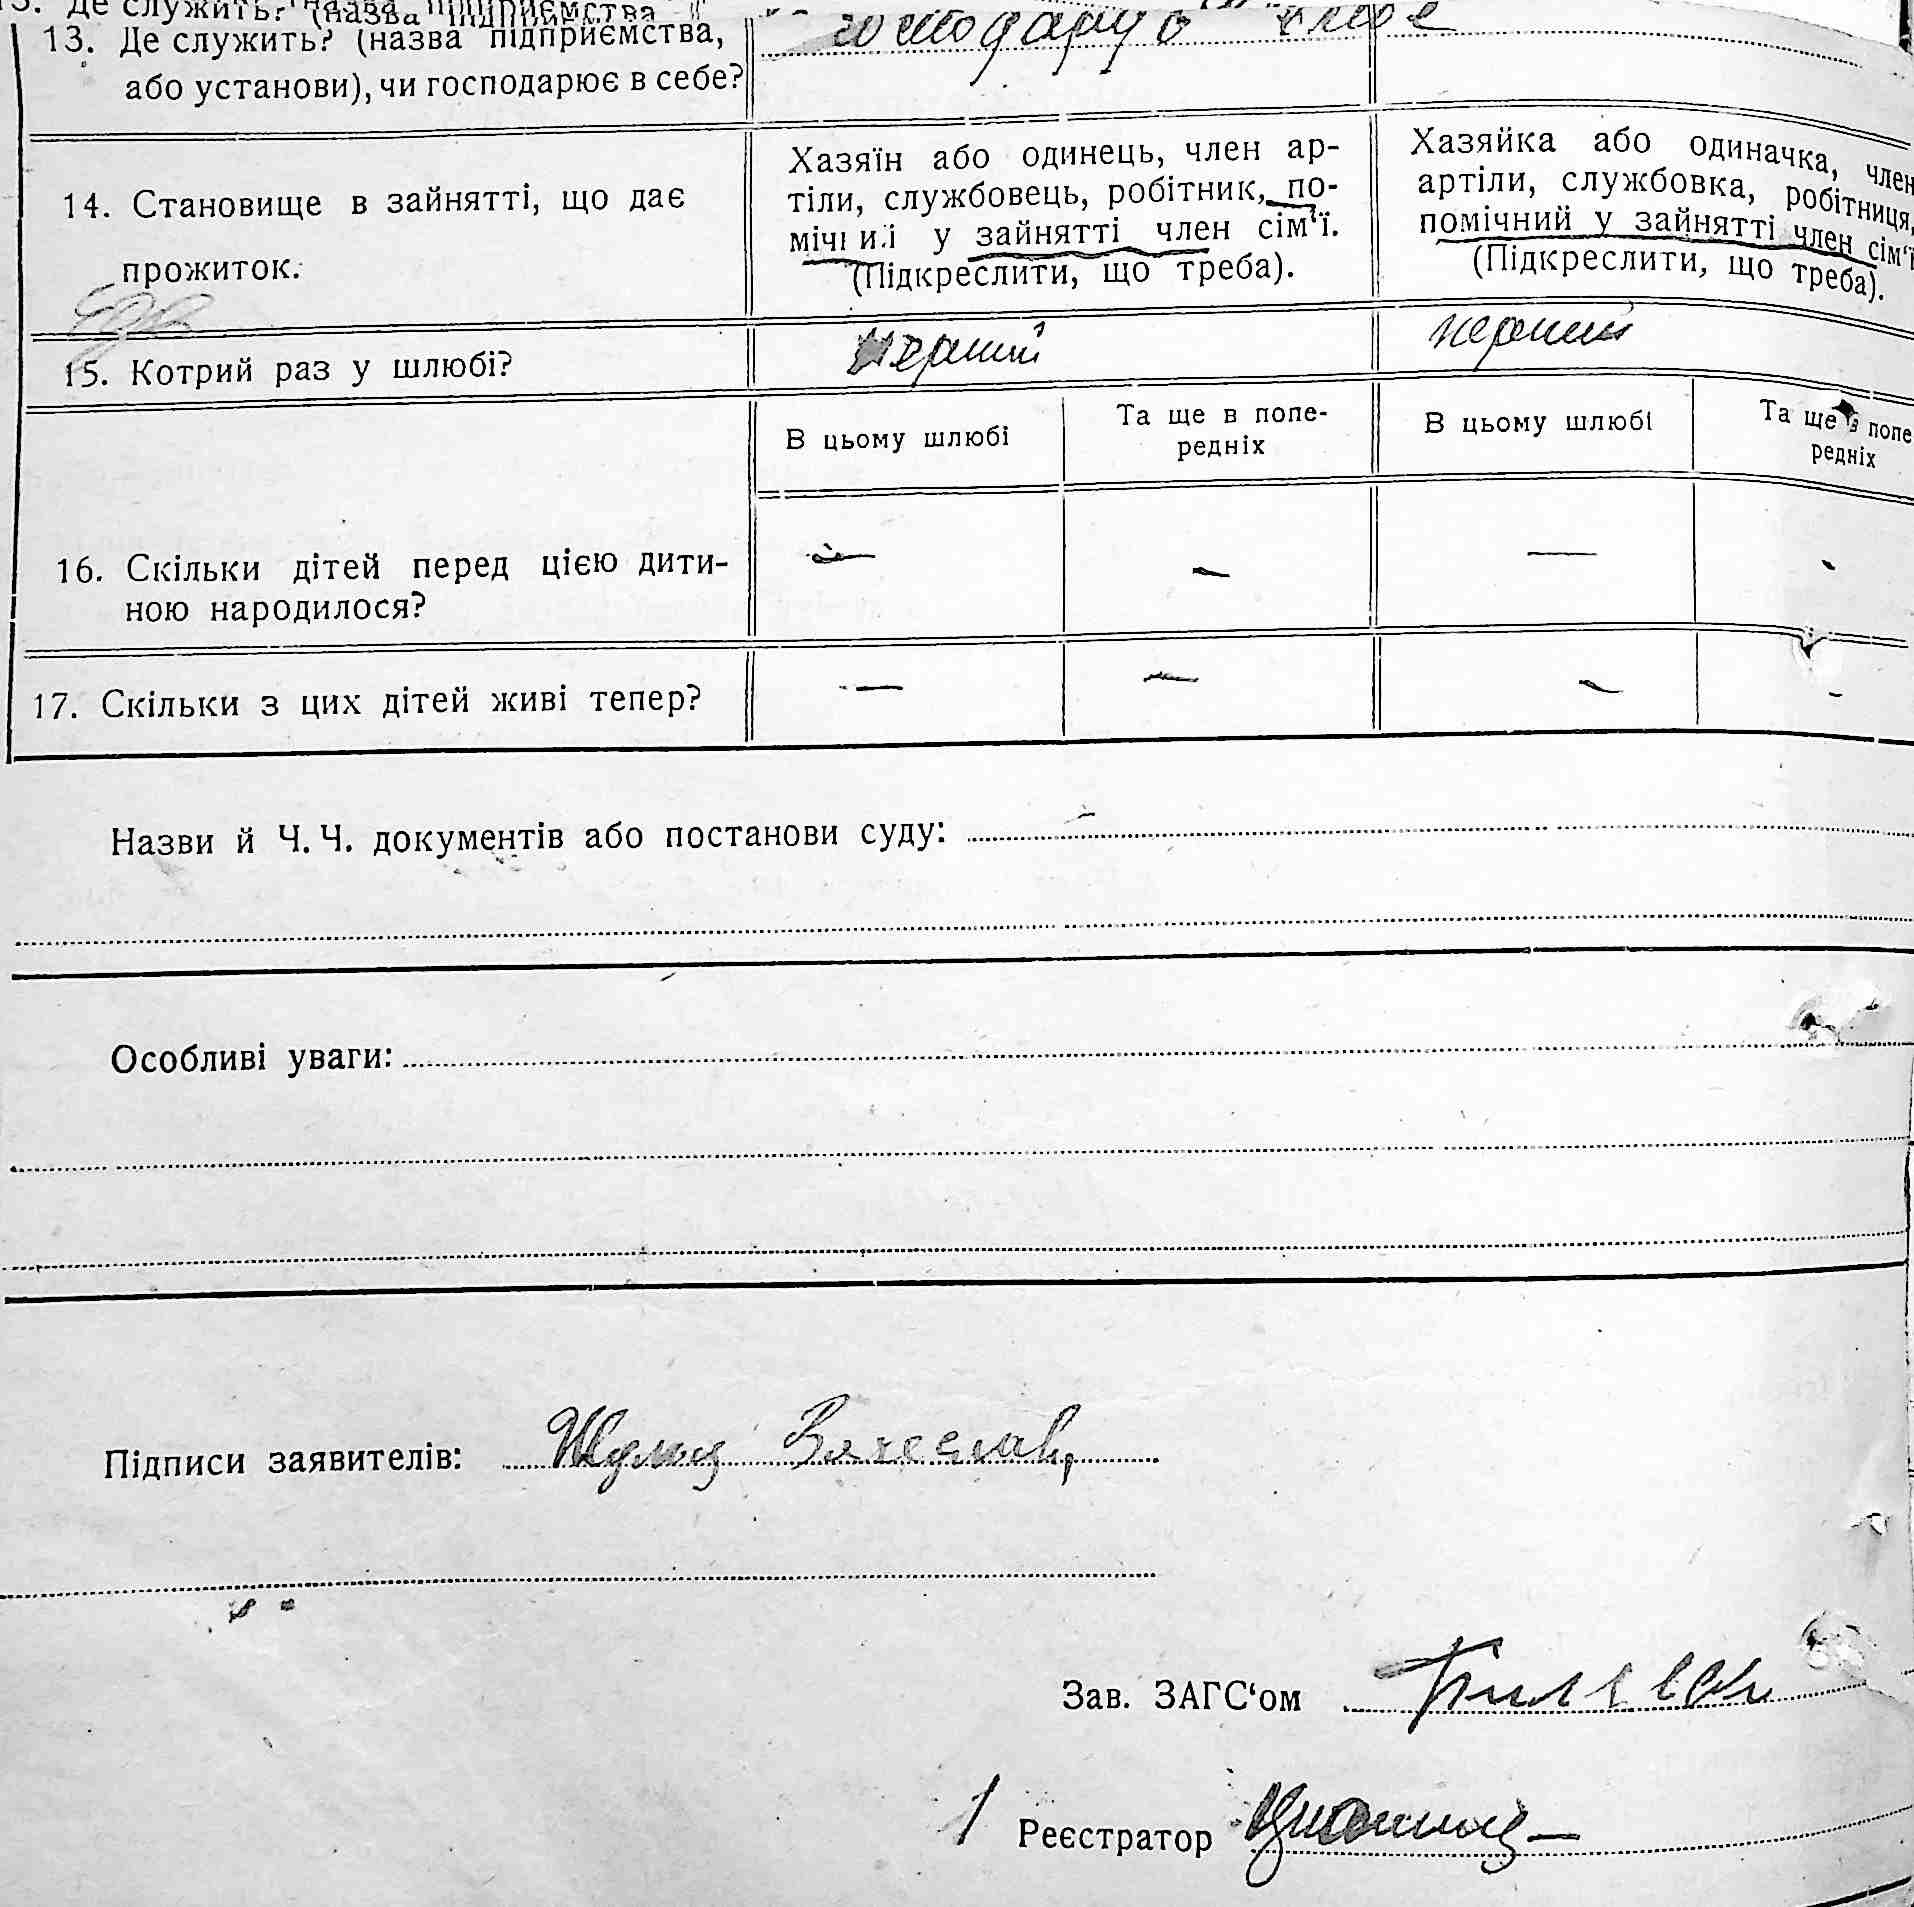 13. Де служить? (назва підприємства,
або установи), чи господарює в себе?
14. Становище в зайнятті, що дає
прожиток.
Хазяїн або одинець, член ар-
тіли, службовець, робітник, по-
мічний у зайнятті член сім'ї.
(Підкреслити, що треба).
Хазяйка або одиначка, член
артіли, службовка, робітниця,
помічний у зайнятті член сім'ї
(Підкреслити, що треба).
15. Котрий раз у шлюбі?
перший
перший
В цьому шлюбі
Та ще в попе-
редніх
В цьому шлюбі
Та ще в попе
редніх
16. Скільки дітей перед цією дити-
ною народилося?
— — — -
17. Скільки з цих дітей живі тепер?
— — — -
Назви й Ч. Ч. документів або постанови суду: -
Особливі уваги:
Підписи заявителів: Вячеслав,
Зав. ЗАГС'ом
Реєстратор